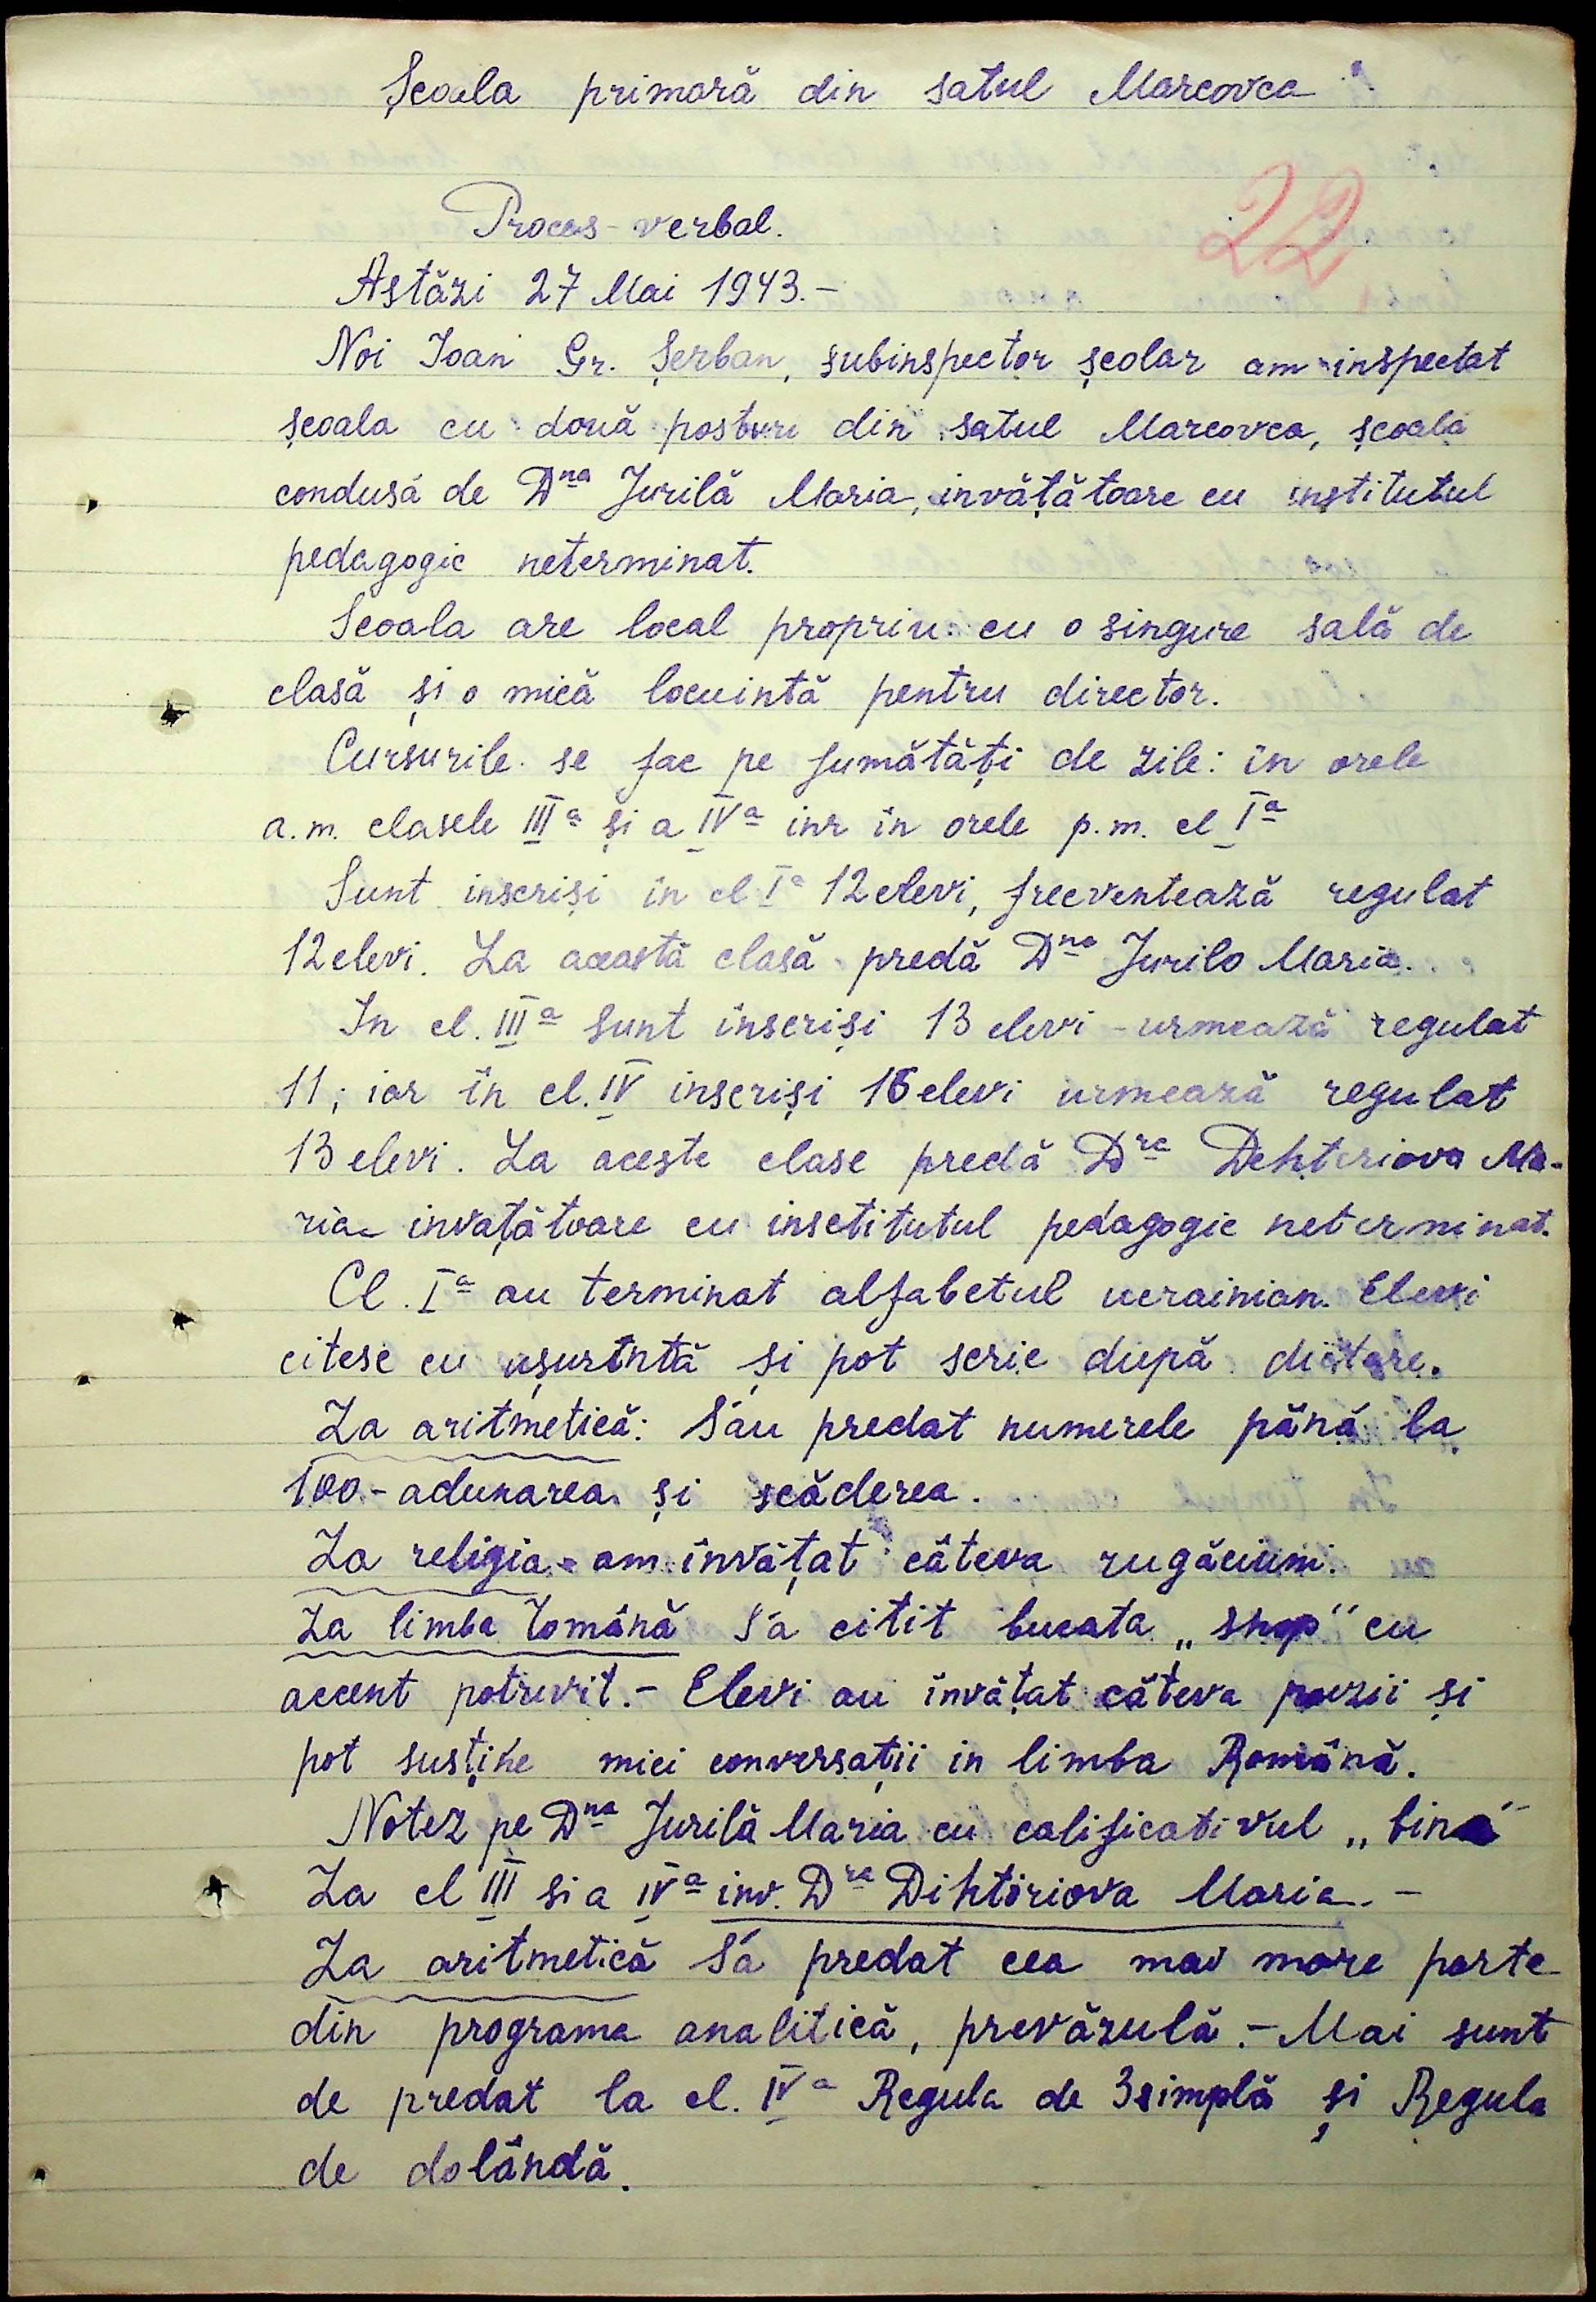 Școala primară din satul Marcovca
22
Proces-verbal.
Astăzi 27 Mai 1943.-
Noi Ioan Gr. Șerban, subinspector școlar am inspectat
școala cu două posturi din satul Marcovca, școala
condusă de Dna Jurilă Maria, învățătoare cu institutul
pedagogic neterminat.
Scoala are local propriu cu o singure sală de
clasă și o mică locuintă pentru director.
Cursurile se fac pe jumătăți de zile: în orele
a.m. clasele IIIa și a IVa inr în orele p.m. cl Ia
Sunt inscriși în cl Ia 12 elevi, frecventează regulat
12 elevi. La această clasă predă Dna Jurilo Maria.
In cl. IIIa sunt înscriși 13 elevi - urmează regulat
11; iar în cl. IV inscriși 16 elevi urmează regulat
13 elevi. La aceste clase predă Dra Dehteriova Ma-
ria invațătoare cu insctitutul pedagogic neterminat.
Cl. Ia au terminat alfabetul ucrainian. Elevi
citesc cu ușurintă și pot scrie după dictare.
La aritmetică: S'au predat numerele până la
100.- adunarea și scăderea.
La religia - am învățat câteva rugăciuni.
La limba română S'a citit bucata „snop" cu
accent potrivit.- Elevi au învățat câteva poezii și
pot susține mici conversații in limba Română.
Notez pe Dna Jurilă Maria cu calificativul „bine"
La cl III si a IVa inv. Dra Dihtiriova Maria.-
La aritmetică S'a predat cea mai mare parte
din programa analitică, prevăzulă.- Mai sunt
de predat la cl. IVa Regula de 3 simplă și Regula
de dolândă.